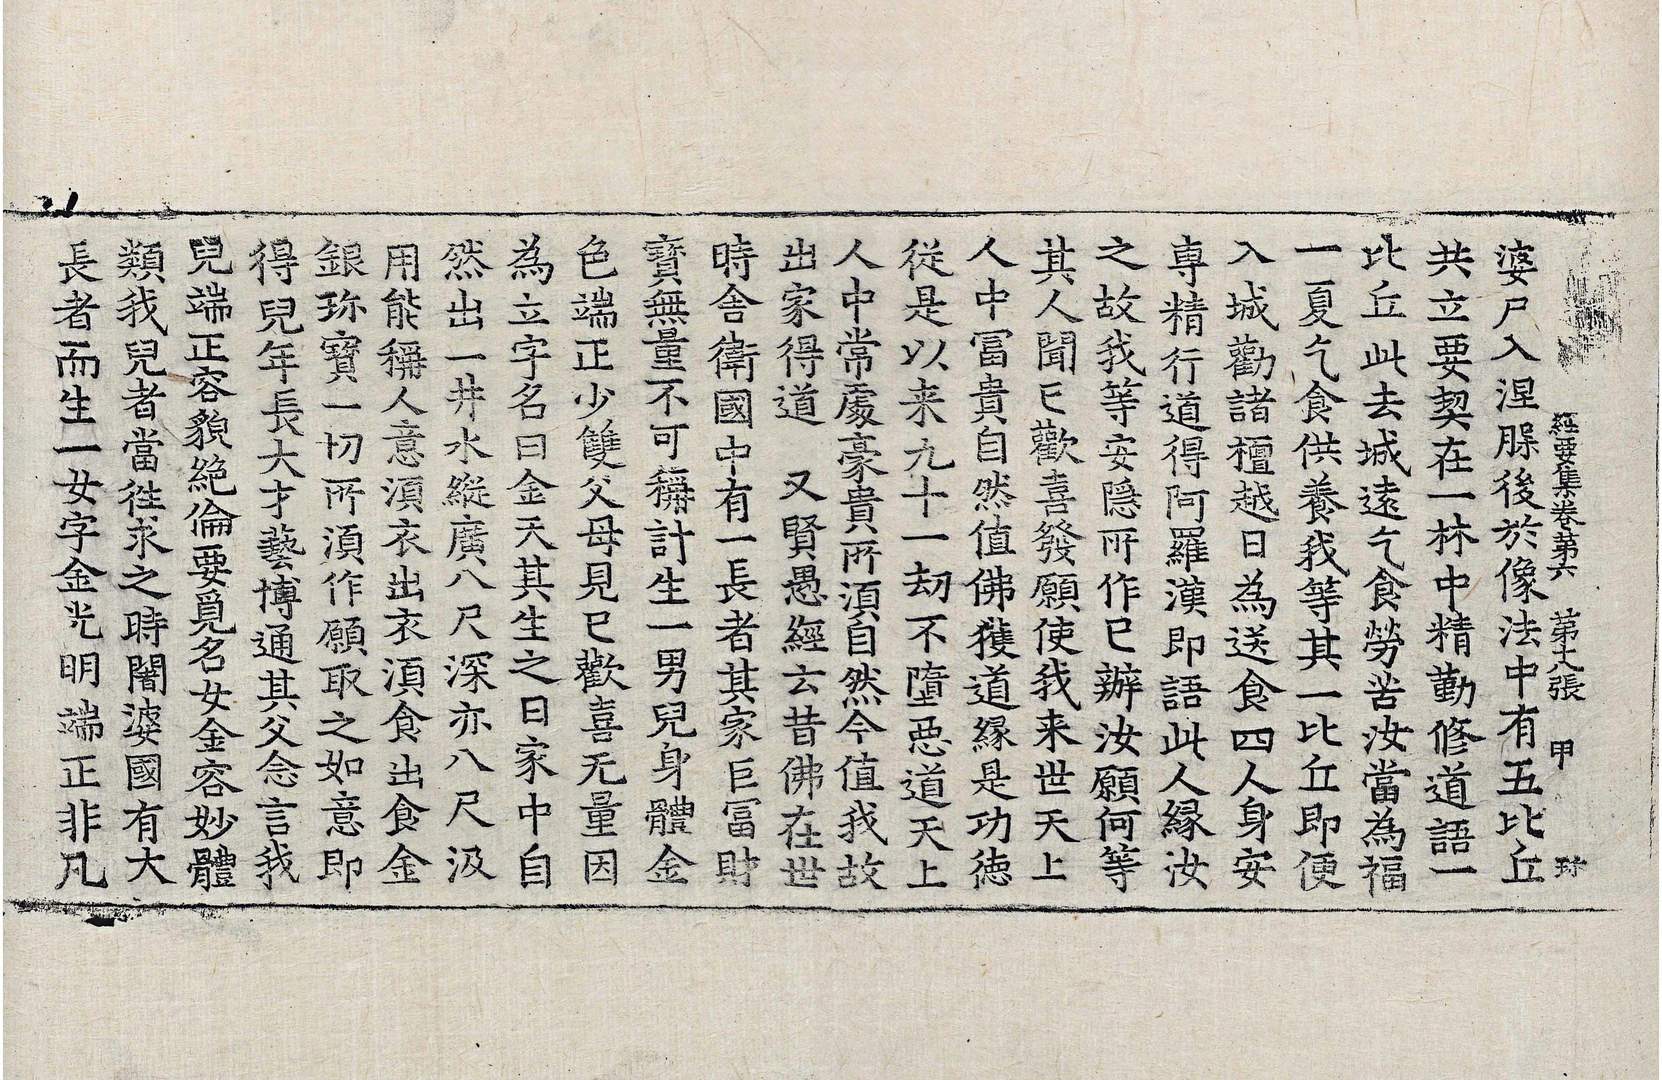 經要集卷第六　第大張　甲　琡
婆尸入涅脲後於像法中有五比丘
共立要契在一林中精勤修道語一
比丘此去城遠乞食勞苦汝當為福
一夏乞食供養我等其一比丘即便
入城勸諸檀越日為送食四人身安
專精行道得阿羅漢即語此人縁汝
之故我等安隱所作已辦汝願何等
其人聞已歡喜發願使我来世天上
人中冨貴自然值佛獲道縁是功徳
從是以来九十一劫不墮惡道天上
人中常處豪貴所湏自然今值我故
出家得道　又賢愚經云昔佛在世
時舎衛國中有一長者其家巨冨財
寶無量不可稱計生一男兒身體金
色端正少雙父母見已歡喜无量因
為立字名曰金天其生之日家中自
然出一井水縱廣八尺深亦八尺汲
用能稱人意湏衣出衣湏食出食金
銀珎寶一切所湏作願取之如意即
得兒年長大才藝博通其父念言我
兒端正容貌絶倫要覓名女金容妙體
類我兒者當徃求之時闍婆國有大
長者而生一女字金光明端正非凡